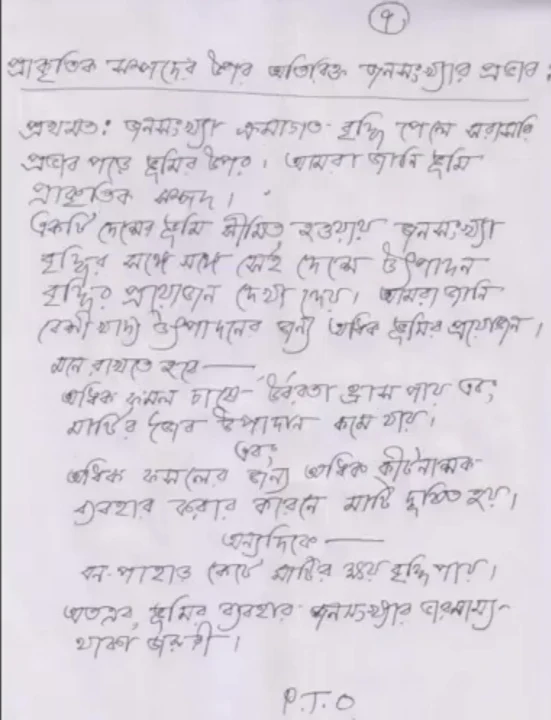 ৭
প্রাকৃতিক সম্পদের উপর অতিরিক্ত জনসংখ্যার প্রভাব :
প্রথমত: জনসংখ্যা ক্রমাগত বৃদ্ধি পেলে সরাসরি
প্রভাব পড়ে ভূমির উপর। আমরা জানি ভূমি
প্রাকৃতিক সম্পদ।
একটি দেশের ভূমি সীমিত হওয়ায় জনসংখ্যা
বৃদ্ধির সঙ্গে সঙ্গে সেই দেশে উৎপাদন
বৃদ্ধির প্রয়োজন দেখা দেয়। আমরা জানি
বেশী খাদ্য উৎপাদনের জন্য অধিক ভূমির প্রয়োজন।
মনে রাখতে হবে —
অধিক ফসল চাষে উর্বরতা হ্রাস পায় এবং
মাটির জৈব উপাদান কমে যায়।
এবং
অধিক ফসলের জন্য অধিক কীটনাশক
ব্যবহার করার কারনে মাটি দূষিত হয়।
অন্যদিকে —
বন-পাহাড় কেটে মাটির ক্ষয় বৃদ্ধি পায়।
অতএব, ভূমির ব্যবহার জনসংখ্যার ভারসাম্য
থাকা জরুরী।
P.T.O